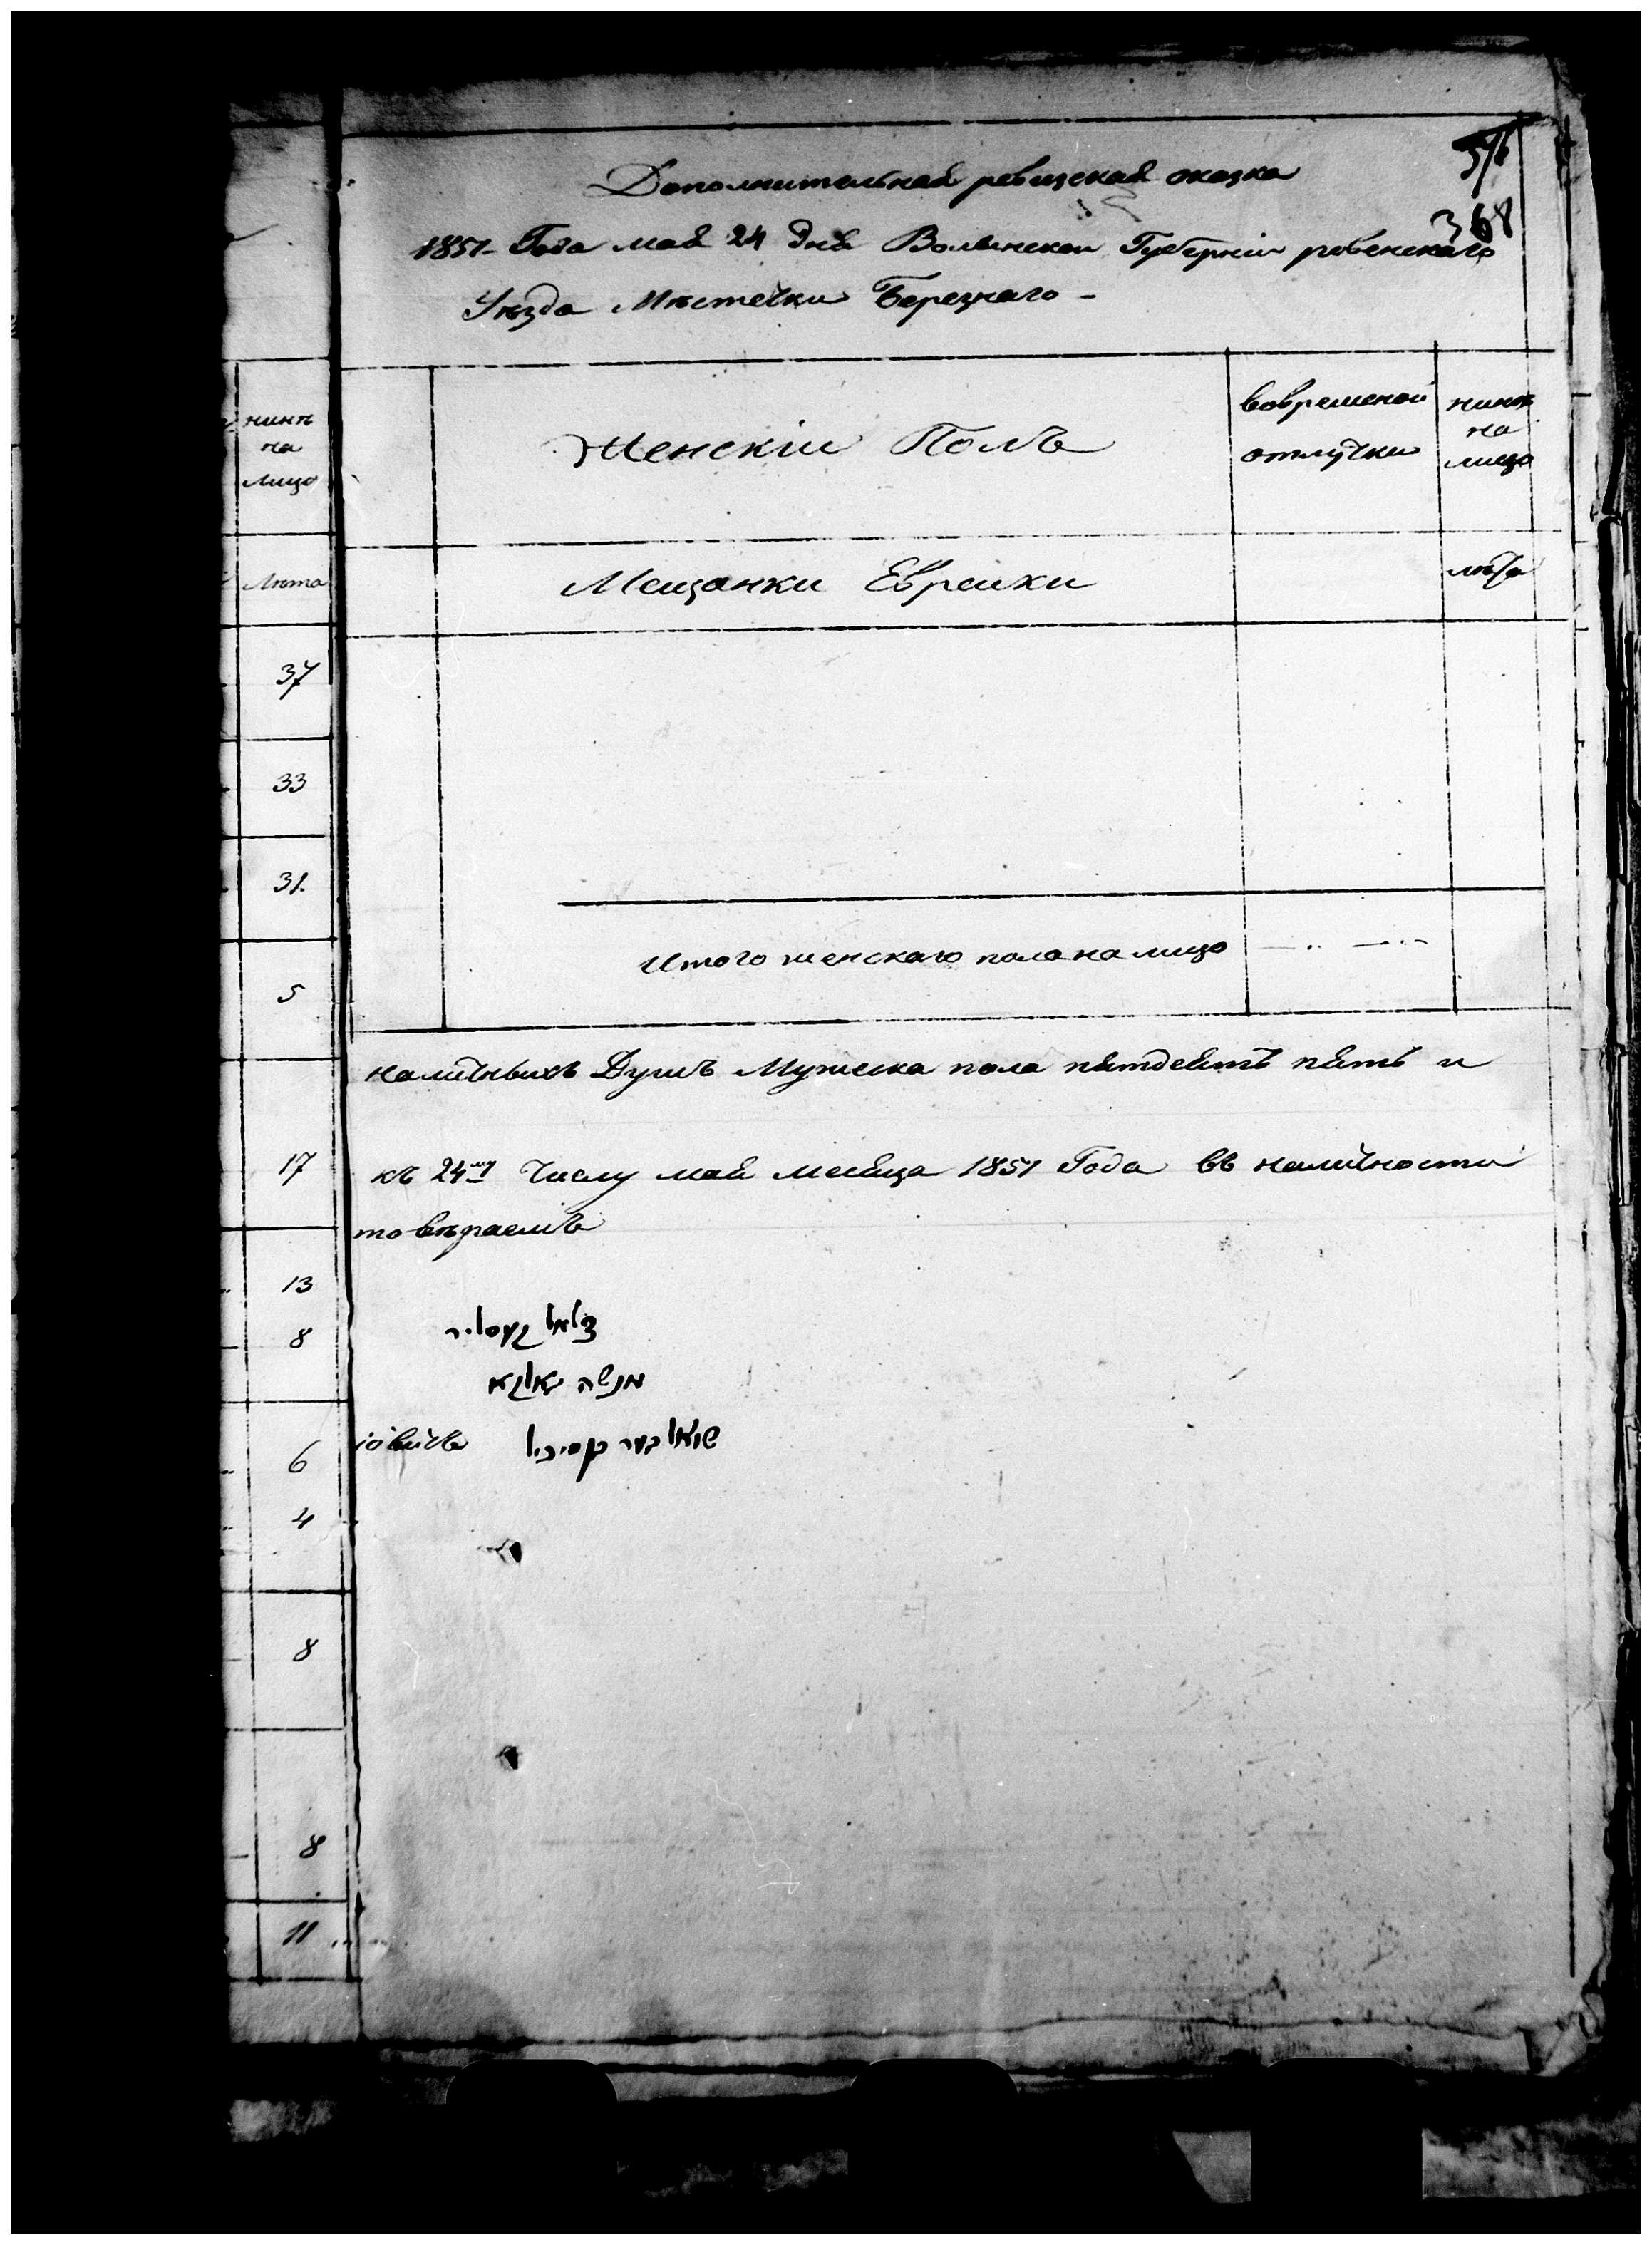 576
368
Дополнительная ревизская сказка
1851- Года мая 24 дня Волынской Губерніи ровенскаго
Уѣзда Мѣстечки Березнаго -
нинѣ на лицо
Женскіи Полъ
вовременой отлучки
нинѣ на лицо
Лѣта
Мещанки Евреики
лѣта
37
33
31.
Итого женскаго пола на лицо
5
наличныхъ Душъ Мужеска пола пятдеятъ пять и
17
къ 24му Числу мая месяца 1851 Года въ наличности
то вѣраемъ
13
8
מנשה
6
4
8
8
11